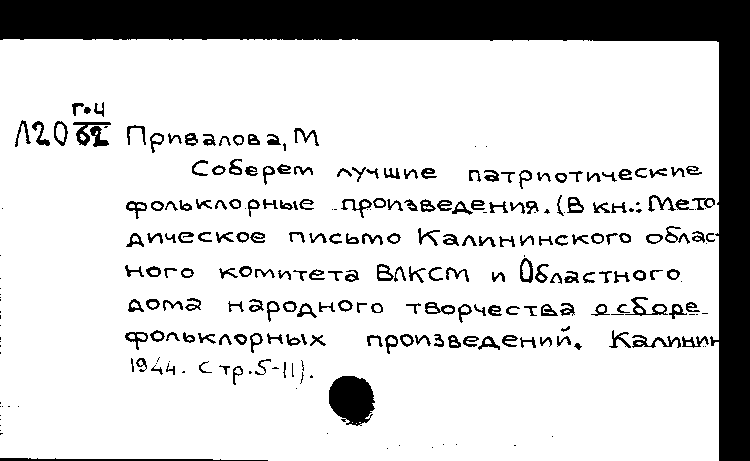 Г.Ч
Л20 62 Привалова, М
Соберем лучшие патриотические
фольклорные произведения. (В кн.: Мето-
дическое письмо Калининского облас
ного комитета ВЛКСМ и Областного
дома народного творчества о сборе
фольклорных произведений. Калинин
1944. Стр. 5-11).